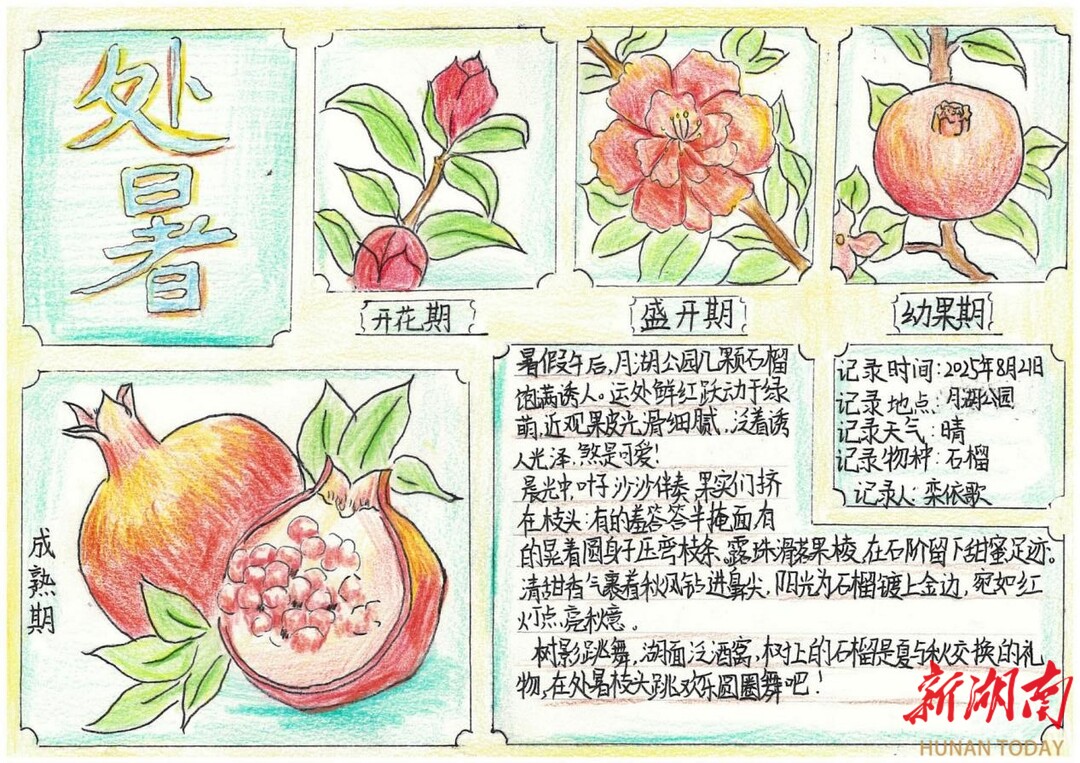 处暑
开花期
盛开期
幼果期
成熟期
暑假午后,月湖公园几颗石榴
饱满诱人。远处鲜红跃动于绿
萌,近观果皮光滑细腻,泛着诱
人光泽,煞是可爱!
晨光中,叶子沙沙伴奏,果实们挤
在枝头:有的羞答答半掩面,有
的晃着圆身子压弯枝条。露珠滑落果棱,在石阶留下甜蜜足迹。
清甜香气裹着秋风钻进鼻尖,阳光为石榴镀上金边,宛如红
灯点亮秋意。
树影跳舞,湖面泛酒窝,树上的石榴是夏与秋交换的礼
物,在处暑枝头跳欢乐圆圈舞吧!
记录时间:2025年8月21日
记录地点:月湖公园
记录天气:晴
记录物种:石榴
记录人:栾依歌
新湖南
HUNAN TODAY